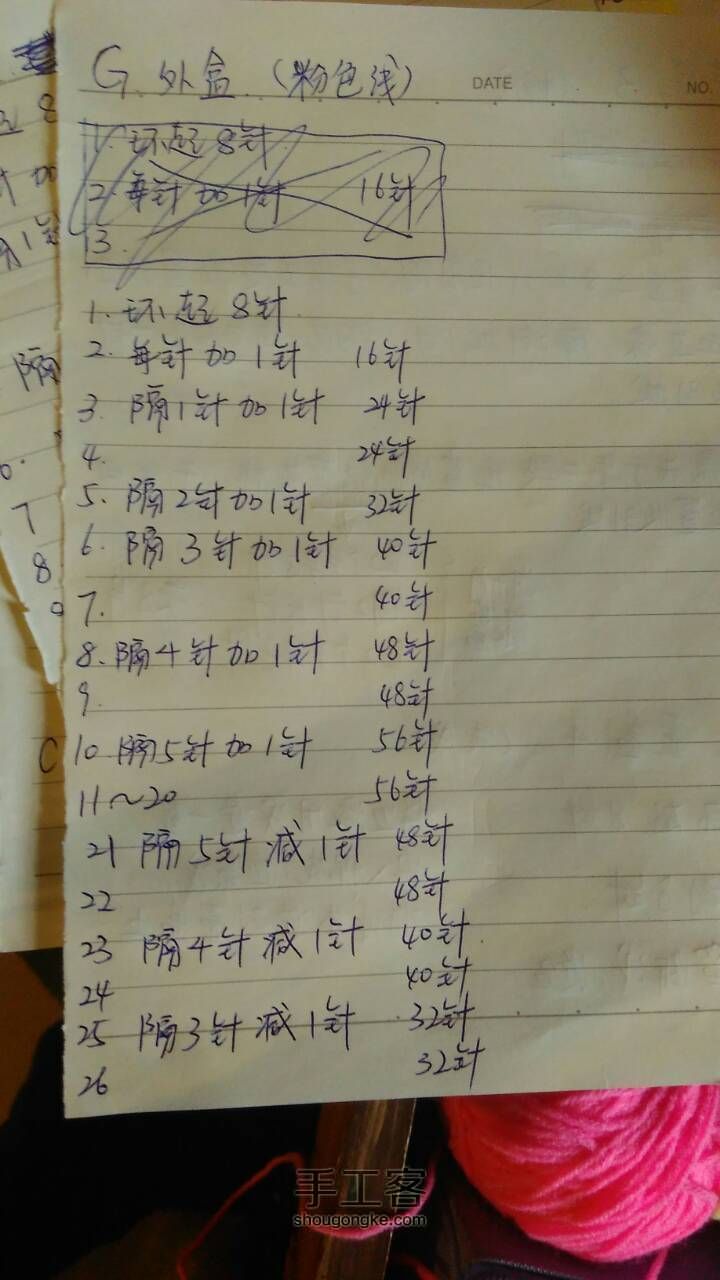 G. 外盒.（粉色线）
DATE
NO.
1. 环起8针
2. 每针加1针 16针
3.
1. 环起8针
2. 每针加1针 16针
3. 隔1针加1针 24针
4. 24针
5. 隔2针加1针 32针
6. 隔3针加1针 40针
7. 40针
8. 隔4针加1针 48针
9. 48针
10 隔5针加1针 56针
11～20 56针
21 隔5针减1针 48针
22 48针
23 隔4针减1针 40针
24 40针
25 隔3针减1针 32针
26 32针
隔
7
8
C
手工客
shougongke.com